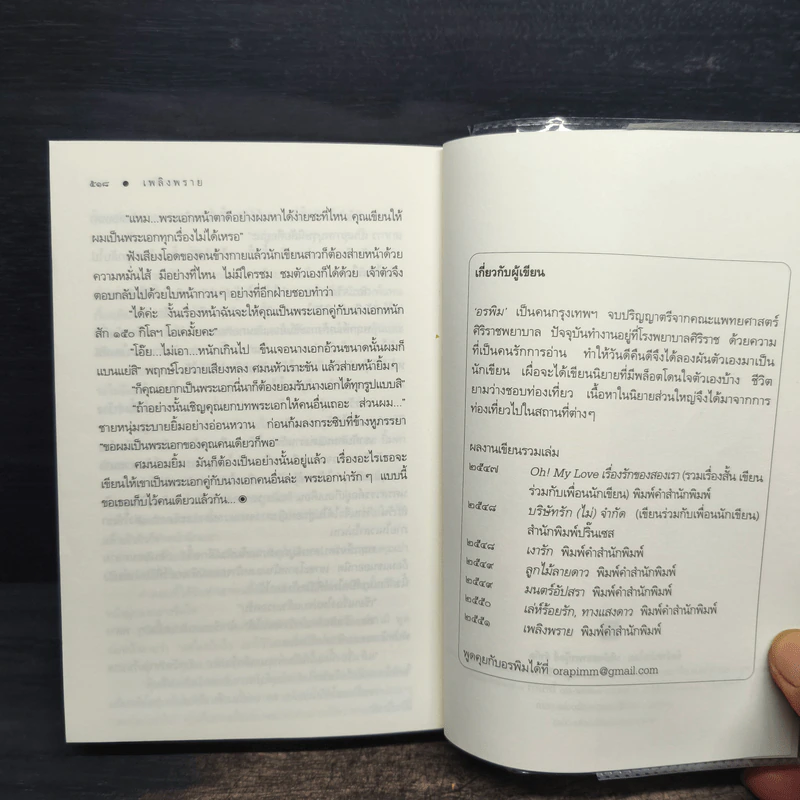 ๕๑๘ ● เพลิงพราย
"แหม...พระเอกหน้าตาดีอย่างผมหาได้ง่ายซะที่ไหน คุณเขียนให้
ผมเป็นพระเอกทุกเรื่องไม่ได้เหรอ"
ฟังเสียงโอดของคนข้างกายแล้วนักเขียนสาวก็ต้องส่ายหน้าด้วย
ความหมั่นไส้ มีอย่างที่ไหน ไม่มีใครชม ชมตัวเองก็ได้ด้วย เจ้าตัวจึง
ตอบกลับไปด้วยใบหน้ากวนๆ อย่างที่อีกฝ่ายชอบทำว่า
"ได้ค่ะ งั้นเรื่องหน้าฉันจะให้คุณเป็นพระเอกคู่กับนางเอกหนัก
สัก ๑๕๐ กิโลฯ โอเคมั้ยคะ"
"โอ๊ย...ไม่เอา...หนักเกินไป ขืนเจอนางเอกอ้วนขนาดนั้นผมก็
แบนแย่สิ" พฤกษ์โวยวายเสียงหลง ศมนหัวเราะขัน แล้วส่ายหน้ายิ้มๆ
"ก็คุณอยากเป็นพระเอกนี่นาก็ต้องยอมรับนางเอกได้ทุกรูปแบบสิ"
"ถ้าอย่างนั้นเชิญคุณยกบทพระเอกให้คนอื่นเถอะ ส่วนผม..."
ชายหนุ่มระบายยิ้มอย่างอ่อนหวาน ก่อนก้มลงกระซิบที่ข้างหูภรรยา
"ขอผมเป็นพระเอกของคุณคนเดียวก็พอ"
ศมนอมยิ้ม มันก็ต้องเป็นอย่างนั้นอยู่แล้ว เรื่องอะไรเธอจะ
เขียนให้เขาเป็นพระเอกกับนางเอกคนอื่นล่ะ พระเอกน่ารักๆ แบบนี้
ขอเธอเก็บไว้คนเดียวแล้วกัน... ◉
เกี่ยวกับผู้เขียน
'อรพิม' เป็นคนกรุงเทพฯ จบปริญญาตรีจากคณะแพทยศาสตร์
ศิริราชพยาบาล ปัจจุบันทำงานอยู่ที่โรงพยาบาลศิริราช ด้วยความ
ที่เป็นคนรักการอ่าน ทำให้วันดีคืนดีจึงได้ลองผันตัวเองมาเป็น
นักเขียน เผื่อจะได้เขียนนิยายที่มีพล็อตโดนใจตัวเองบ้าง ชีวิต
ยามว่างชอบท่องเที่ยว เนื้อหาในนิยายส่วนใหญ่จึงได้มาจากการ
ท่องเที่ยวไปในสถานที่ต่างๆ
ผลงานเขียนรวมเล่ม
๒๕๔๗ Oh! My Love เรื่องรักของสองเรา (รวมเรื่องสั้น เขียน
ร่วมกับเพื่อนนักเขียน) พิมพ์คำสำนักพิมพ์
๒๕๔๘ บริษัทรัก (ไม่) จำกัด (เขียนร่วมกับเพื่อนนักเขียน)
สำนักพิมพ์ปริ๊นเซส
๒๕๔๘ เงารัก พิมพ์คำสำนักพิมพ์
๒๕๔๙ ลูกไม้ลายดาว พิมพ์คำสำนักพิมพ์
๒๕๔๙ มนตร์อัปสรา พิมพ์คำสำนักพิมพ์
๒๕๕๐ เล่ห์ร้อยรัก, ทางแสงดาว พิมพ์คำสำนักพิมพ์
๒๕๕๑ เพลิงพราย พิมพ์คำสำนักพิมพ์
พูดคุยกับอรพิมได้ที่ orapimm@gmail.com